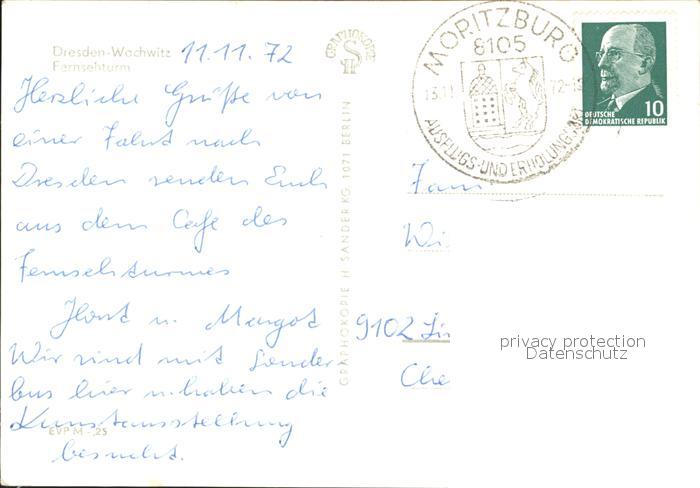 Dresden-Wachwitz
Fernsehturm
11.11.72
Herzliche Grüße von
einer Fahrt nach
Dresden senden Euch
aus dem Cafe des
Fernsehturmes
Horst u. Margot
Wir sind mit Sonder
bus hier u. haben die
Kunstausstellung
besucht.
EVP M -,25
GRAPHOKOPIE
H S
GRAPHOKOPIE H SANDER KG, 1071 BERLIN
MORITZBURG
8105
AUSFLUGS-UND ERHOLUNGSORT
10
DEUTSCHE
DEMOKRATISCHE REPUBLIK
Fam
Wi
9102 Li
Che
privacy protection
Datenschutz